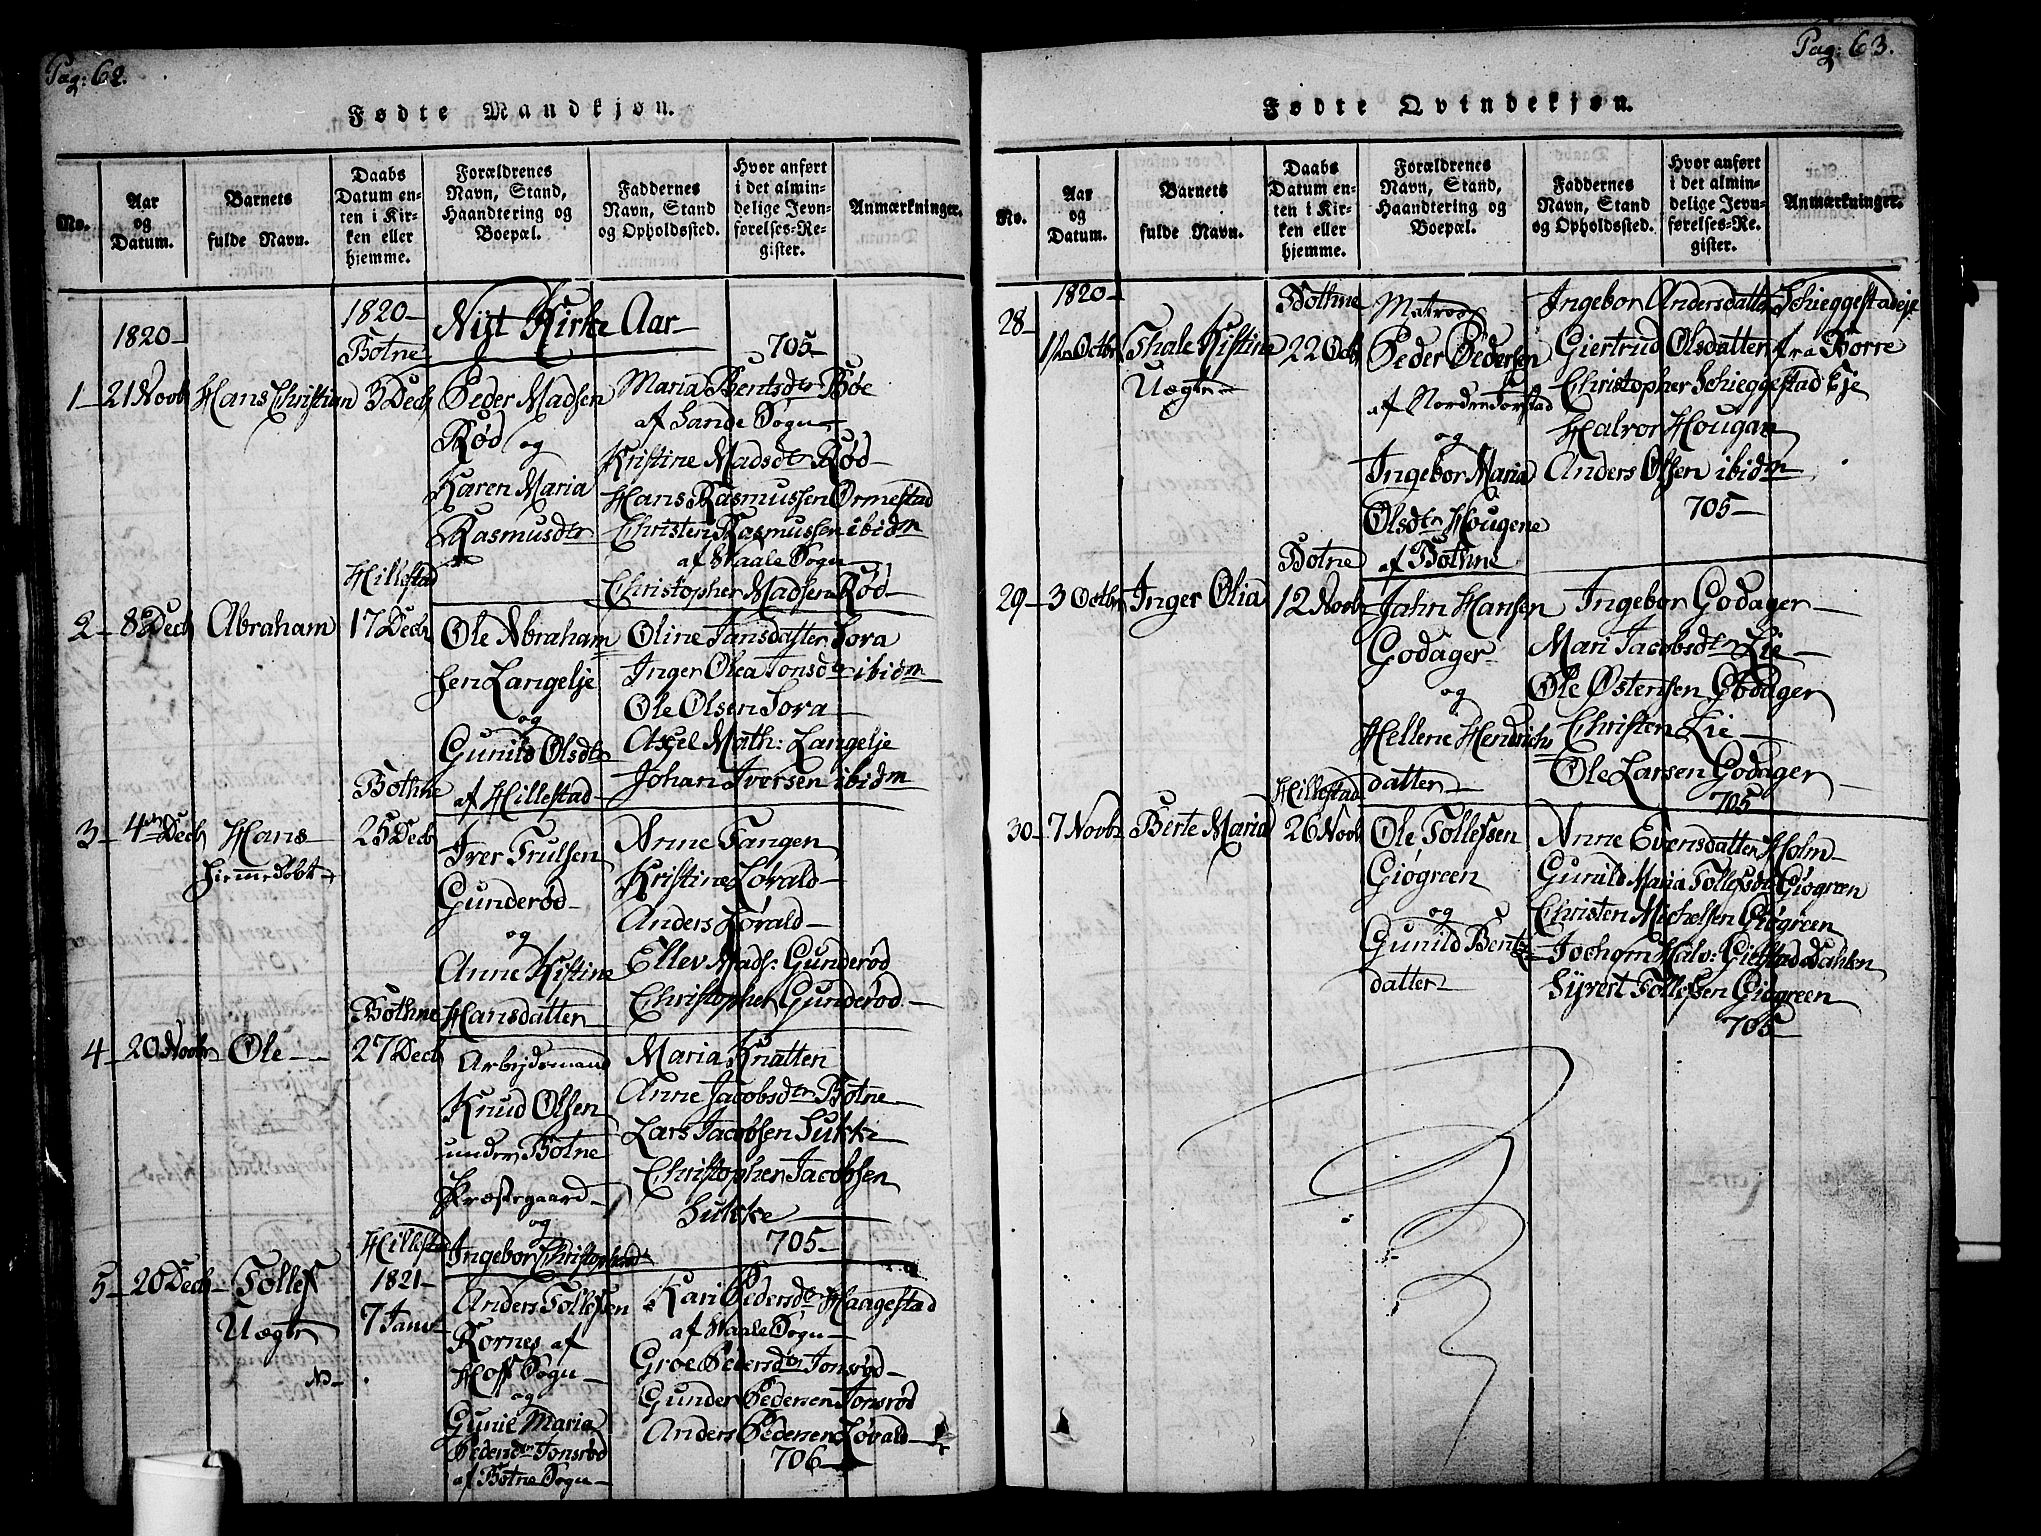 Pag: 62.
Fødte Mandkjøn.
No.
Aar
og
Datum.
Barnets
fulde Navn.
Daabs
Datum en-
ten i Kir-
ken eller
hjemme.
Forældrenes
Navn, Stand,
Haandtering og
Boepæl.
Faddernes
Navn, Stand
og Opholdssted.
Hvor anført
i det almin-
delige Jevn-
førelses-Re-
gister.
Anmærkninger.
1820-
1820-
Botne
Nyt Kirke Aar-
705-
1- 21 Novb Hans Christian 3 Decb
Peder Madsen
Rød og
Karen Maria
Rasmusdtr
Maria Bentsdtr Bøe
af Sande Sogn-
Kristine Madsdtr Rød-
Hans Rasmussen Ormestad
Christen Rasmussen ibidm
af Waale Sogn
Christopher Madsen Rød-
Hillestad
2- 8de Decb Abraham 17 Decb
Ole Abraham
sen Langelje
og
Gunild Olsdtr
af Hillestad-
Oline Jansdatter Sora
Inger Olea Jonsdtr ibidm
Ole Olsen Sora-
Axel Math: Langelje
Johan Iversen ibidm
Bothne
3- 4de Decb Hans-
Hiemedøbt-
25 Decb
Iver Trulsen
Gunderød-
og
Anne Kistine
Hansdatter
Anne Tangen
Kristine Løvald-
Anders Løvald-
Ellev Mads: Gunderød
Christopher Gunderød.-
Bothne
4- 20 Novbr Ole-- 27 Decb
Arbejdsmand
Knud Olsen
under Botne
Præstegaard-
og
Ingebor Christophersd
Maria Knatten
Anne Jacobsdtr Botne-
Lars Jacobsen Sukke
Christopher Jacobsen
Sukke
705-
Hillestad
1821-
5- 20 Decb- Tollef
Uægte
7 Janu
Anders Tollefsen
Kornes af
Hoff Sogn-
og
Gunie Maria
Pedersdtr Jonsrød
af Botne Sogn-
Kari Pedersdtr Haagestad
af Waale Sogn-
Groe Pedersdtr Jonsrød-
Gunder Pedersen Jonsrød
Anders Pedersen Løvald-
706-
Pag: 63.
Fødte Qvindekjøn.
No.
Aar
og
Datum.
Barnets
fulde Navn.
Daabs
Datum en-
ten i Kir-
ken eller
hjemme.
Forældrenes
Navn, Stand,
Haandtering og
Boepæl.
Faddernes
Navn, Stand
og Opholdssted.
Hvor anført
i det almin-
delige Jevn-
førelses-Re-
gister.
Anmærkninger.
1820-
Bothne
28- Octbr Thale Kistine 22 Octb
Uægte
Matros
Peder Pedersen
af Nordre Torstad
og
Ingebor Maria
Olsdtr Hougene
af Bothne
Ingebor Andersdatter Schieggestadeje
Giertrud Olsdatter fra Borre
Christopher Schieggestad Eje
Halvor Hougan
Anders Olsen ibidm
705-
Botne
29- 3 Octbr Inger Olia 12 Novbr
Jahn Hansen
Godager-
og
Hellene Hendrichs
datter-
Ingebor Godager-
Mari Jacobsdtr Lie-
Ole Østensen Godager
Christen Lie-
Ole Larsen Godager-
705
Hillestad
30- 7 Novbr Berte Maria 26 Novb
Ole Tollefsen
Giøgreen
og
Gunild Bents
datter-
Anne Evensdatter Holm-
Gunild Maria Tollefsdtr Giøgreen
Christen Michelsen Giøgreen
Jochom Halv: Gielstad Dahlen
Syvert Tollefsen Giøgreen
705-